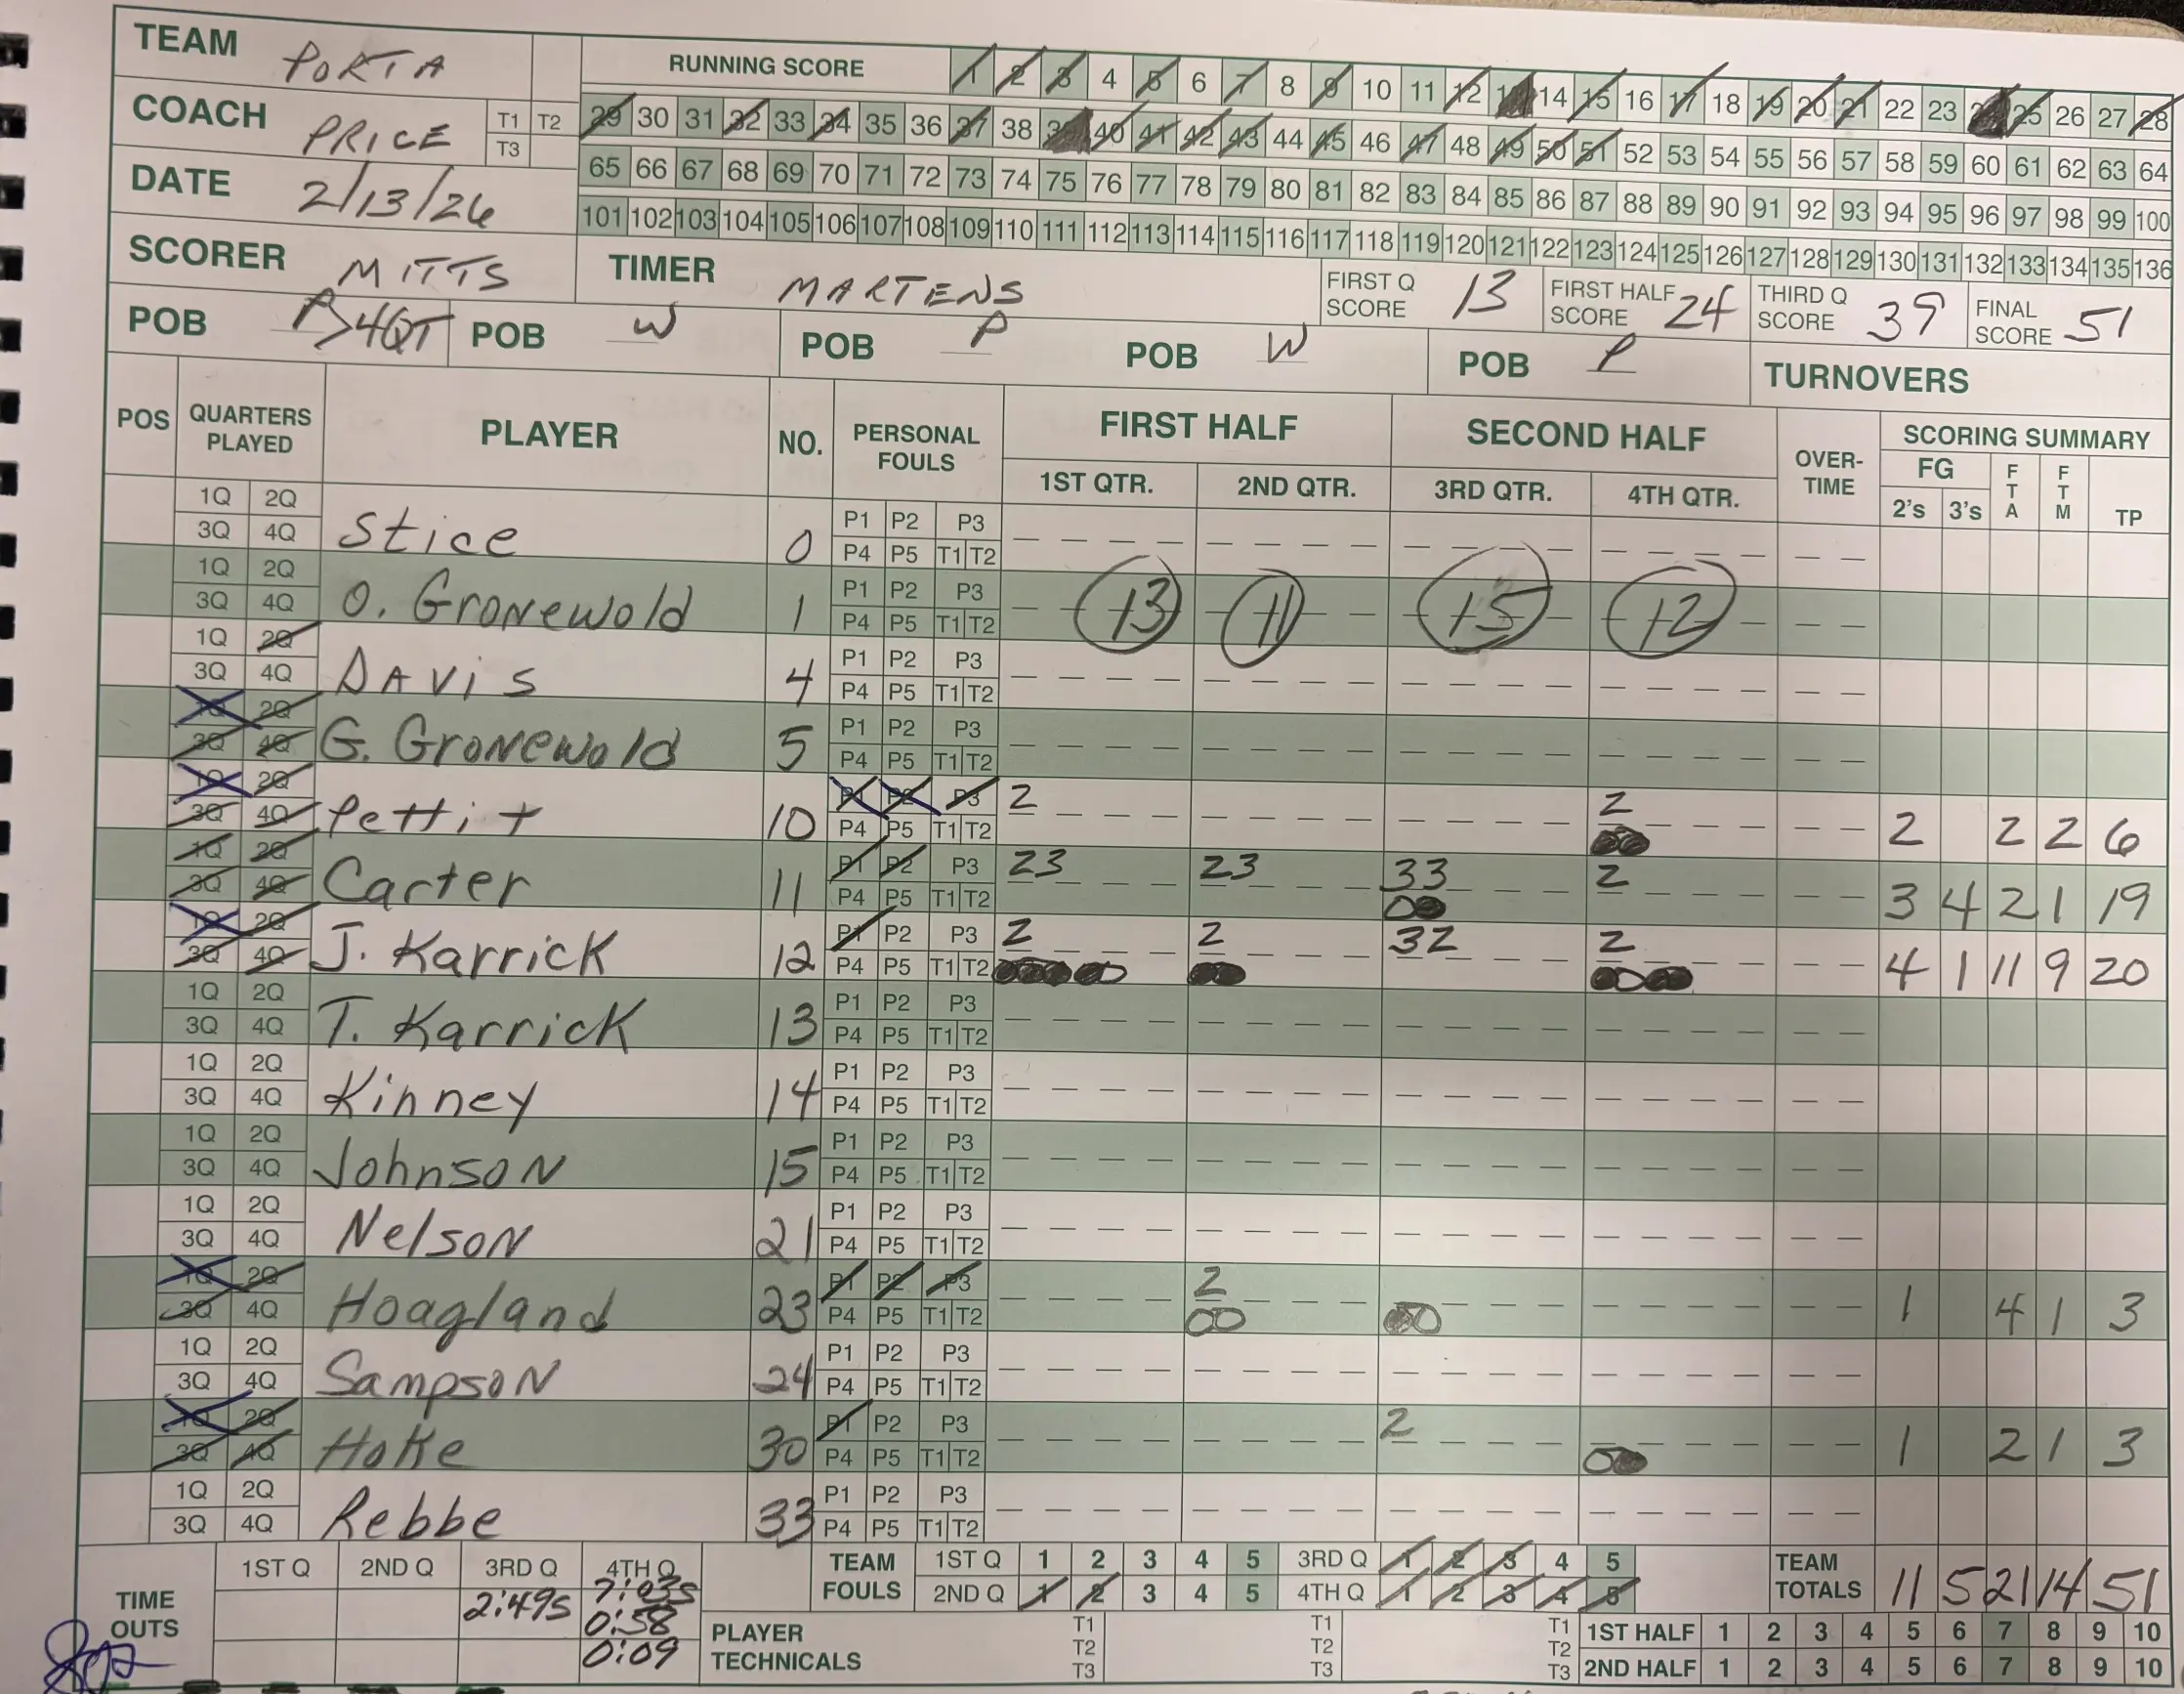 TEAM PORTA
RUNNING SCORE 1 2 3 4 5 6 7 8 9 10 11 12 13 14 15 16 17 18 19 20 21 22 23 24 25 26 27 28
COACH PRICE T1 T2 T3
29 30 31 32 33 34 35 36 37 38 39 40 41 42 43 44 45 46 47 48 49 50 51 52 53 54 55 56 57 58 59 60 61 62 63 64
DATE 2/13/26
65 66 67 68 69 70 71 72 73 74 75 76 77 78 79 80 81 82 83 84 85 86 87 88 89 90 91 92 93 94 95 96 97 98 99 100
101 102 103 104 105 106 107 108 109 110 111 112 113 114 115 116 117 118 119 120 121 122 123 124 125 126 127 128 129 130 131 132 133 134 135 136
SCORER MITTS TIMER MARTENS FIRST Q SCORE 13 FIRST HALF SCORE 24 THIRD Q SCORE 39 FINAL SCORE 51
POB P>4QT POB W POB P POB W POB P TURNOVERS
POS QUARTERS PLAYED PLAYER NO. PERSONAL FOULS FIRST HALF SECOND HALF OVER-TIME SCORING SUMMARY
1ST QTR. 2ND QTR. 3RD QTR. 4TH QTR. FG 2's 3's FTA FTM TP
1Q 2Q Stice 0 P1 P2 P3
3Q 4Q P4 P5 T1 T2
1Q 2Q O. Gronewold 1 P1 P2 P3 13 11 15 12
3Q 4Q P4 P5 T1 T2
1Q 2Q Davis 4 P1 P2 P3
3Q 4Q P4 P5 T1 T2
1Q 2Q G. Gronewold 5 P1 P2 P3
3Q 4Q P4 P5 T1 T2
1Q 2Q Pettit 10 P1 P2 P3 2 2 2 2 2 6
3Q 4Q P4 P5 T1 T2
1Q 2Q Carter 11 P1 P2 P3 23 23 33 2 3 4 2 1 19
3Q 4Q P4 P5 T1 T2
1Q 2Q J. Karrick 12 P1 P2 P3 2 2 32 2 4 1 11 9 20
3Q 4Q P4 P5 T1 T2
1Q 2Q T. Karrick 13 P1 P2 P3
3Q 4Q P4 P5 T1 T2
1Q 2Q Kinney 14 P1 P2 P3
3Q 4Q P4 P5 T1 T2
1Q 2Q Johnson 15 P1 P2 P3
3Q 4Q P4 P5 T1 T2
1Q 2Q Nelson 21 P1 P2 P3
3Q 4Q P4 P5 T1 T2
1Q 2Q Hoagland 23 P1 P2 P3 2 1 4 1 3
3Q 4Q P4 P5 T1 T2
1Q 2Q Sampson 24 P1 P2 P3
3Q 4Q P4 P5 T1 T2
1Q 2Q Hoke 30 P1 P2 P3 2 1 2 1 3
3Q 4Q P4 P5 T1 T2
1Q 2Q Rebbe 33 P1 P2 P3
3Q 4Q P4 P5 T1 T2
TIME OUTS 1ST Q 2ND Q 3RD Q 4TH Q
2:49s 7:03s
0:58
0:09
TEAM FOULS 1ST Q 1 2 3 4 5 3RD Q 1 2 3 4 5
2ND Q 1 2 3 4 5 4TH Q 1 2 3 4 5
TEAM TOTALS 11 5 21 14 51
PLAYER TECHNICALS T1 T2 T3 T1 T2 T3 T1 T2 T3
1ST HALF 1 2 3 4 5 6 7 8 9 10
2ND HALF 1 2 3 4 5 6 7 8 9 10